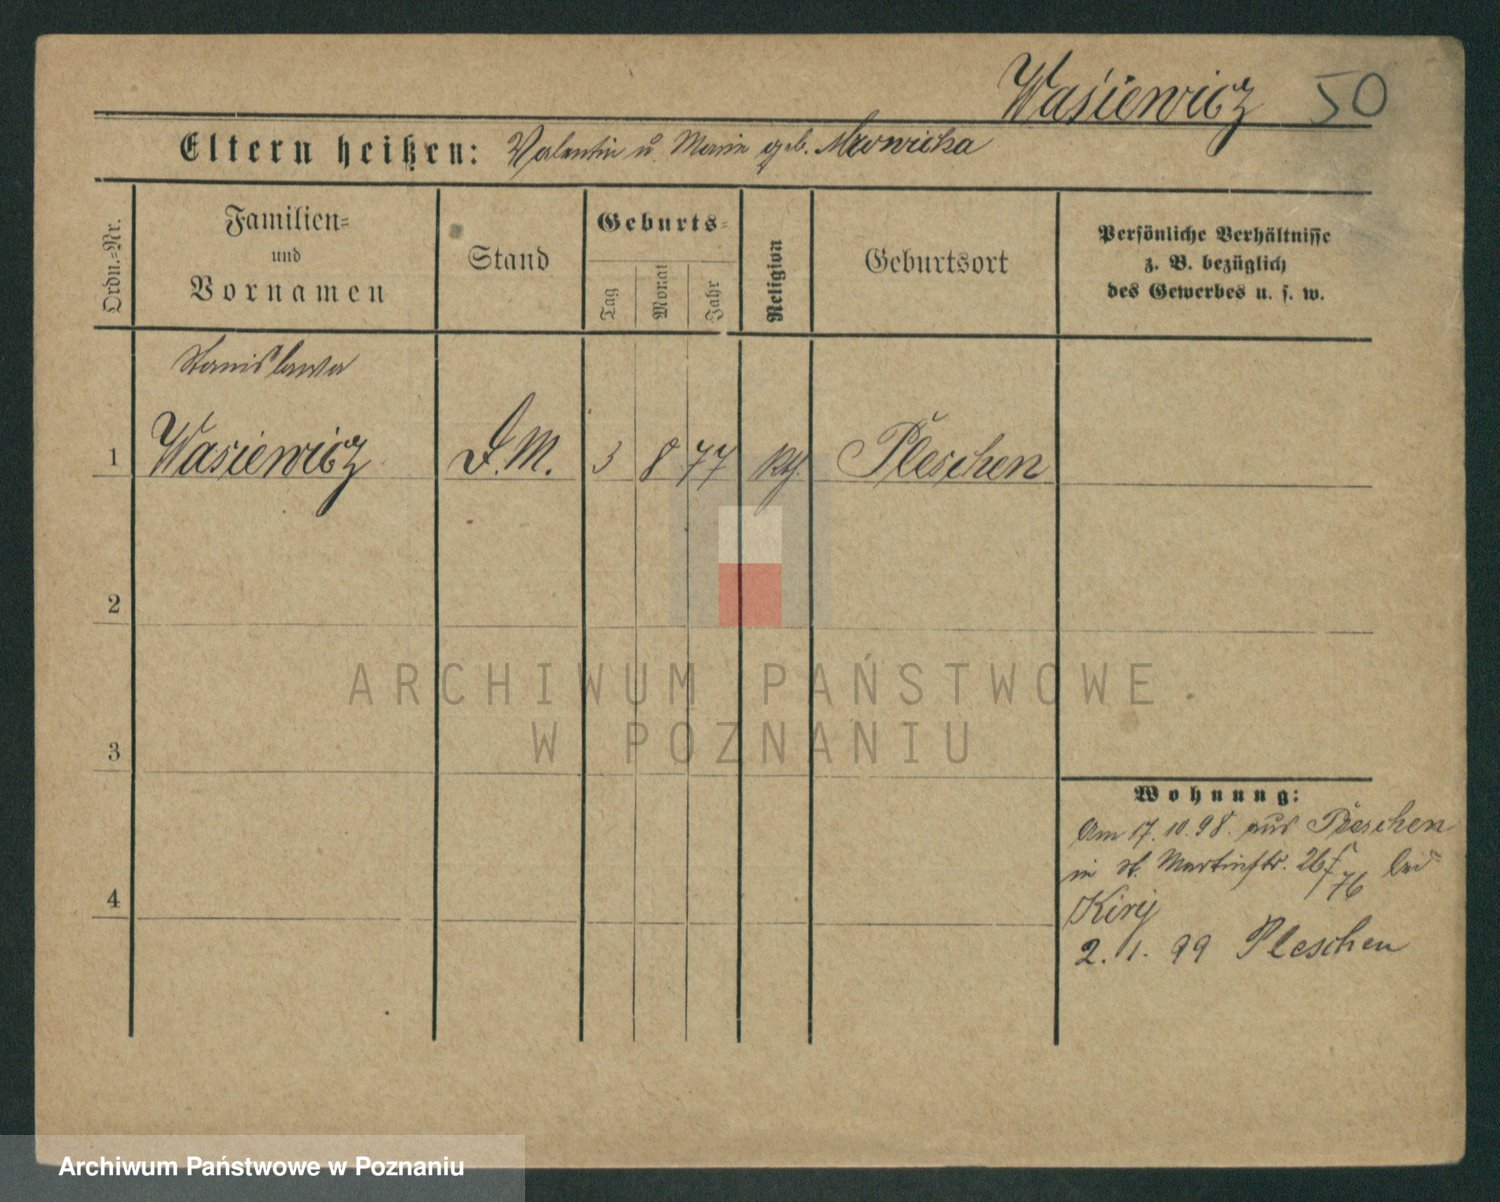 Waśiewicz 50
Eltern heißen: Valentin u. Marie geb. Mrowicka
Ordn.=Nr.
Familien=
und
Vornamen
Stand
Geburts=
Tag
Monat
Jahr
Religion
Geburtsort
Persönliche Verhältnisse
z. B. bezüglich
des Gewerbes u. s. w.
Stanislawa
1 Wasiewicz D.M. 3 8 77 kth. Pleschen
2
3
4
Wohnung:
Am 17.10.98. aus Pleschen
in St. Martinstr. 26/76 bei
Kirij
2. 1. 99 Pleschen
ARCHIWUM PAŃSTWOWE
W POZNANIU
Archiwum Państwowe w Poznaniu